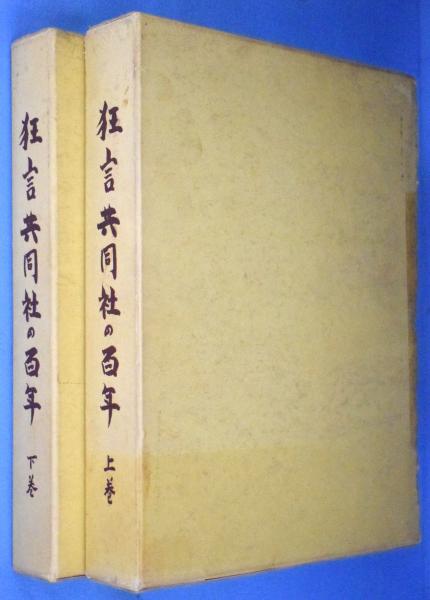 狂言共同社の百年 上巻
狂言共同社の百年 下巻